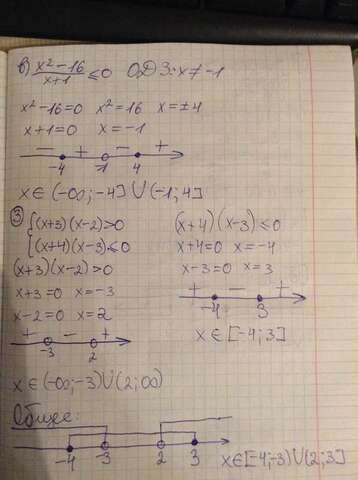 в) x²-16/x+1 ≤0 ОДЗ: x≠-1
x²-16=0 x²=16 x=±4
x+1=0 x=-1
- + - +
-4 -1 4
x∈(-∞;-4]∪(-1;4]
③ {(x+3)(x-2)>0
{(x+4)(x-3)≤0
(x+3)(x-2)>0
x+3=0 x=-3
x-2=0 x=2
+ - +
-3 2
x∈(-∞;-3)∪(2;∞)
(x+4)(x-3)≤0
x+4=0 x=-4
x-3=0 x=3
+ - +
-4 3
x∈[-4;3]
Общее:
-4 -3 2 3 x∈[-4;-3)∪(2;3]